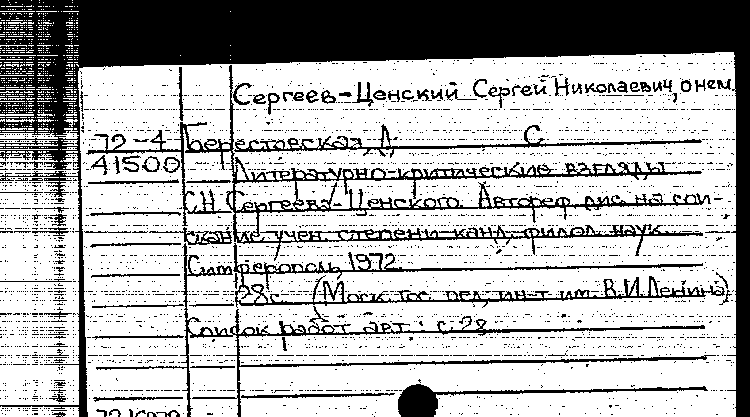 Сергеев-Ценский Сергей Николаевич, о нем
72-4 Берестовская, Д. С.
41500 Литературно-критические взгляды
С.Н. Сергеева-Ценского. Автореф. дис. на сои-
скание учен. степени канд. филол. наук.
Симферополь, 1972.
28 с. (Моск. гос. пед. ин-т им. В.И. Ленина)
Список работ авт.: с. 28